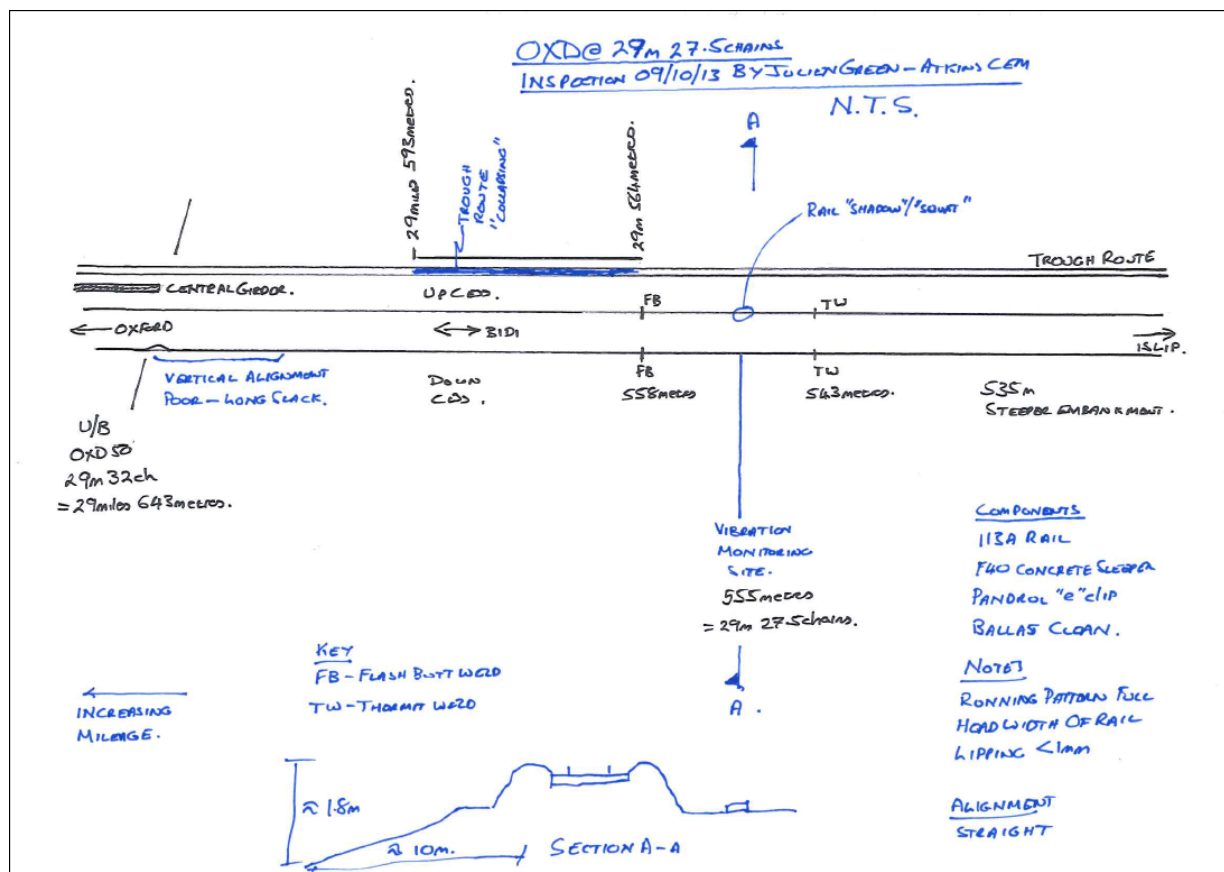 OXD@ 29m 27.5CHAINS
INSPECTION 09/10/13 BY JULIEN GREEN - ATKINS CEM
N.T.S.
A
29MILES 593METRES.
TROUGH
ROUTE
"COLLAPSING"
29m 564METRES.
RAIL "SHADOW"/"SQUAT"
TROUGH ROUTE
CENTRAL GIRDER.
UP CESS.
FB
TW
OXFORD
BIDI
ISLIP.
VERTICAL ALIGNMENT
POOR - LONG SLACK.
DOWN
CESS.
FB
558metres
TW
543metres.
535m
STEEPER EMBANKMENT.
U/B
OXD 50
29m 32ch
= 29miles 643metres.
VIBRATION
MONITORING
SITE.
555metres
= 29m 27.5chains.
A.
COMPONENTS
113A RAIL
F40 CONCRETE SLEEPER
PANDROL "e" clip
BALLAS CLEAN.
NOTES
RUNNING PATTERN FULL
HEAD WIDTH OF RAIL
LIPPING <1mm
ALIGNMENT
STRAIGHT
KEY
FB - FLASH BUTT WELD
TW - THERMIT WELD
INCREASING
MILEAGE.
≈ 1.8m
≈ 10m.
SECTION A-A